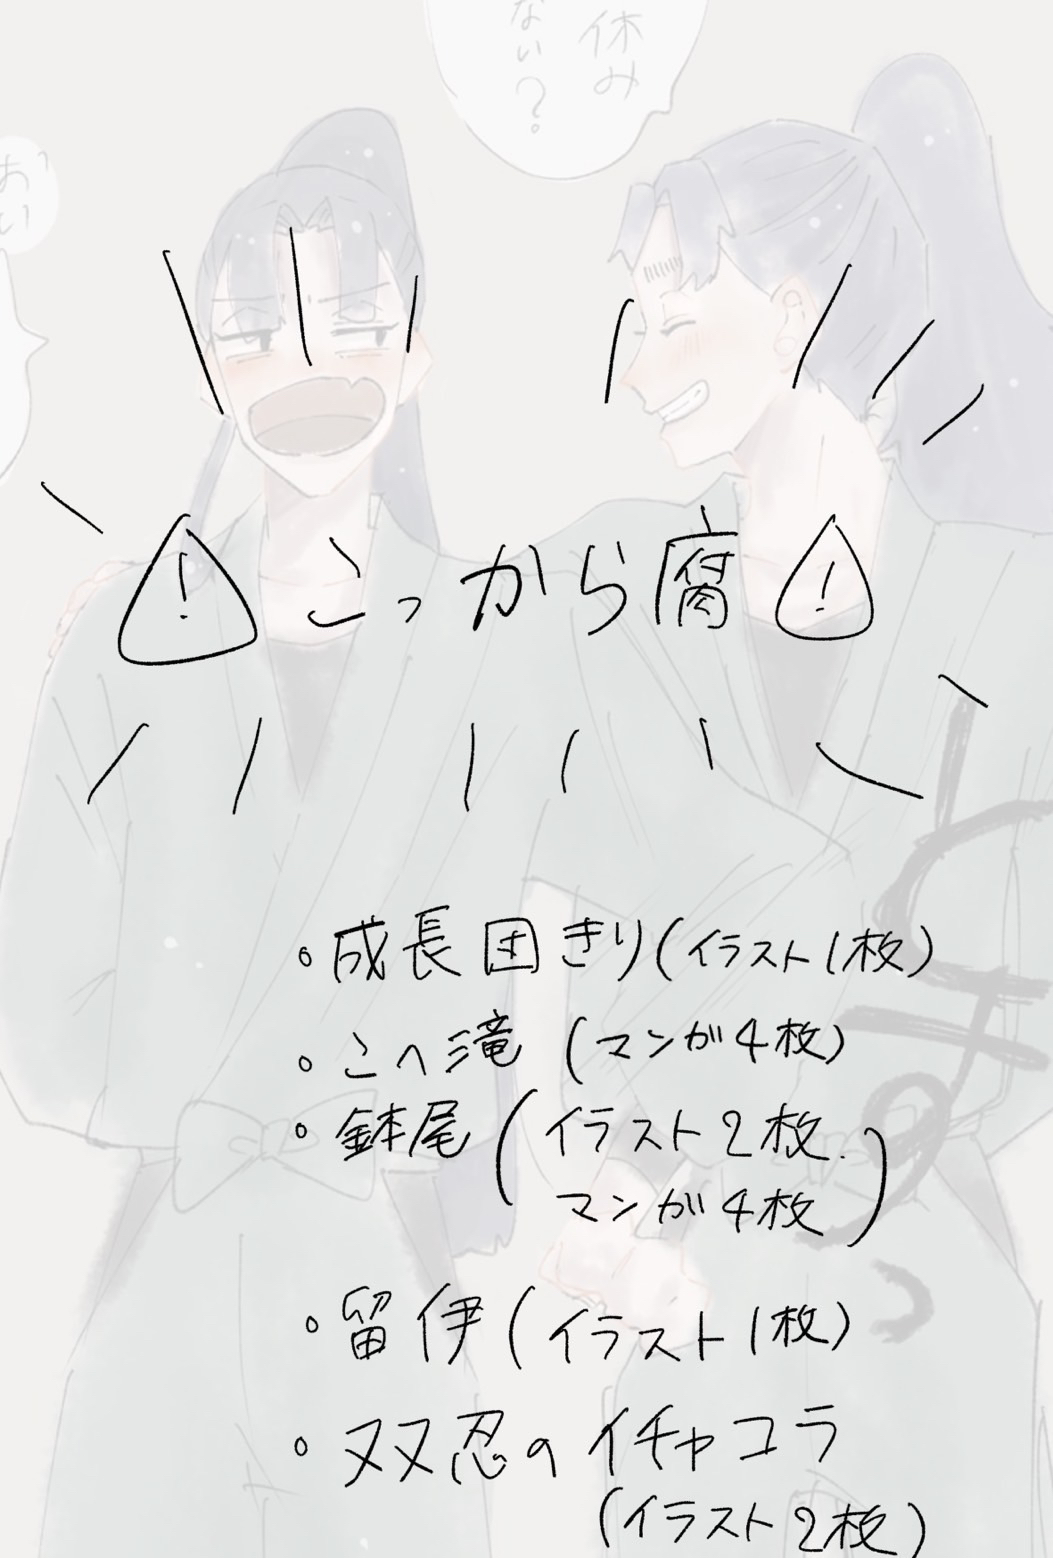 休み
ない?
あい
! こっから腐 !
・成長団きり(イラスト1枚)
・こへ滝(マンガ4枚)
・鉢尾(イラスト2枚.
マンガ4枚)
・留伊(イラスト1枚)
・双忍のイチャコラ
(イラスト2枚)